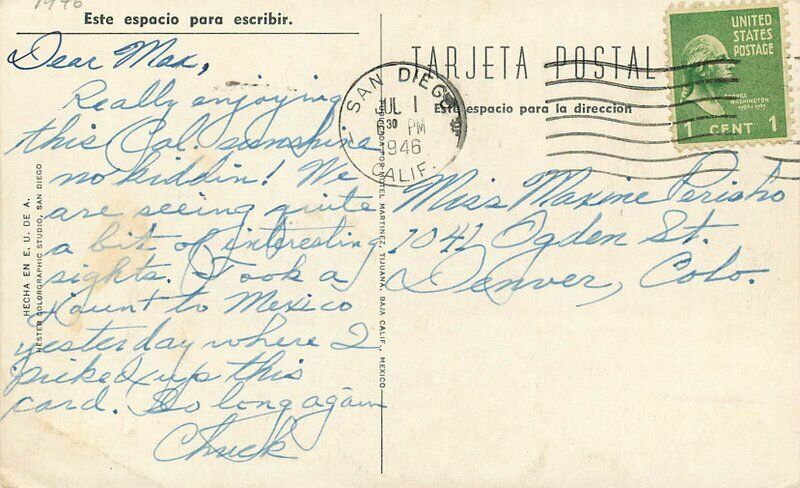 1946
Este espacio para escribir.
Dear Max,
Really enjoying
this Cal. sunshine
no kiddin! We
are seeing quite
a bit of interesting
sights. Took a
jaunt to Mexico
yesterday where I
picked up this
card. So long again
Chuck
HECHA EN E. U. DE A.
HESTER COLORGRAPHIC STUDIO, SAN DIEGO
HOTEL MARTINEZ, TIJUANA, BAJA CALIF., MEXICO
TARJETA POSTAL
Este espacio para la dirección
SAN DIEGO
JUL 1
30 PM
1946
CALIF.
UNITED
STATES
POSTAGE
GEORGE
WASHINGTON
1789-1797
1 CENT 1
Miss Maxine Perisho
1041 Ogden St.
Denver, Colo.